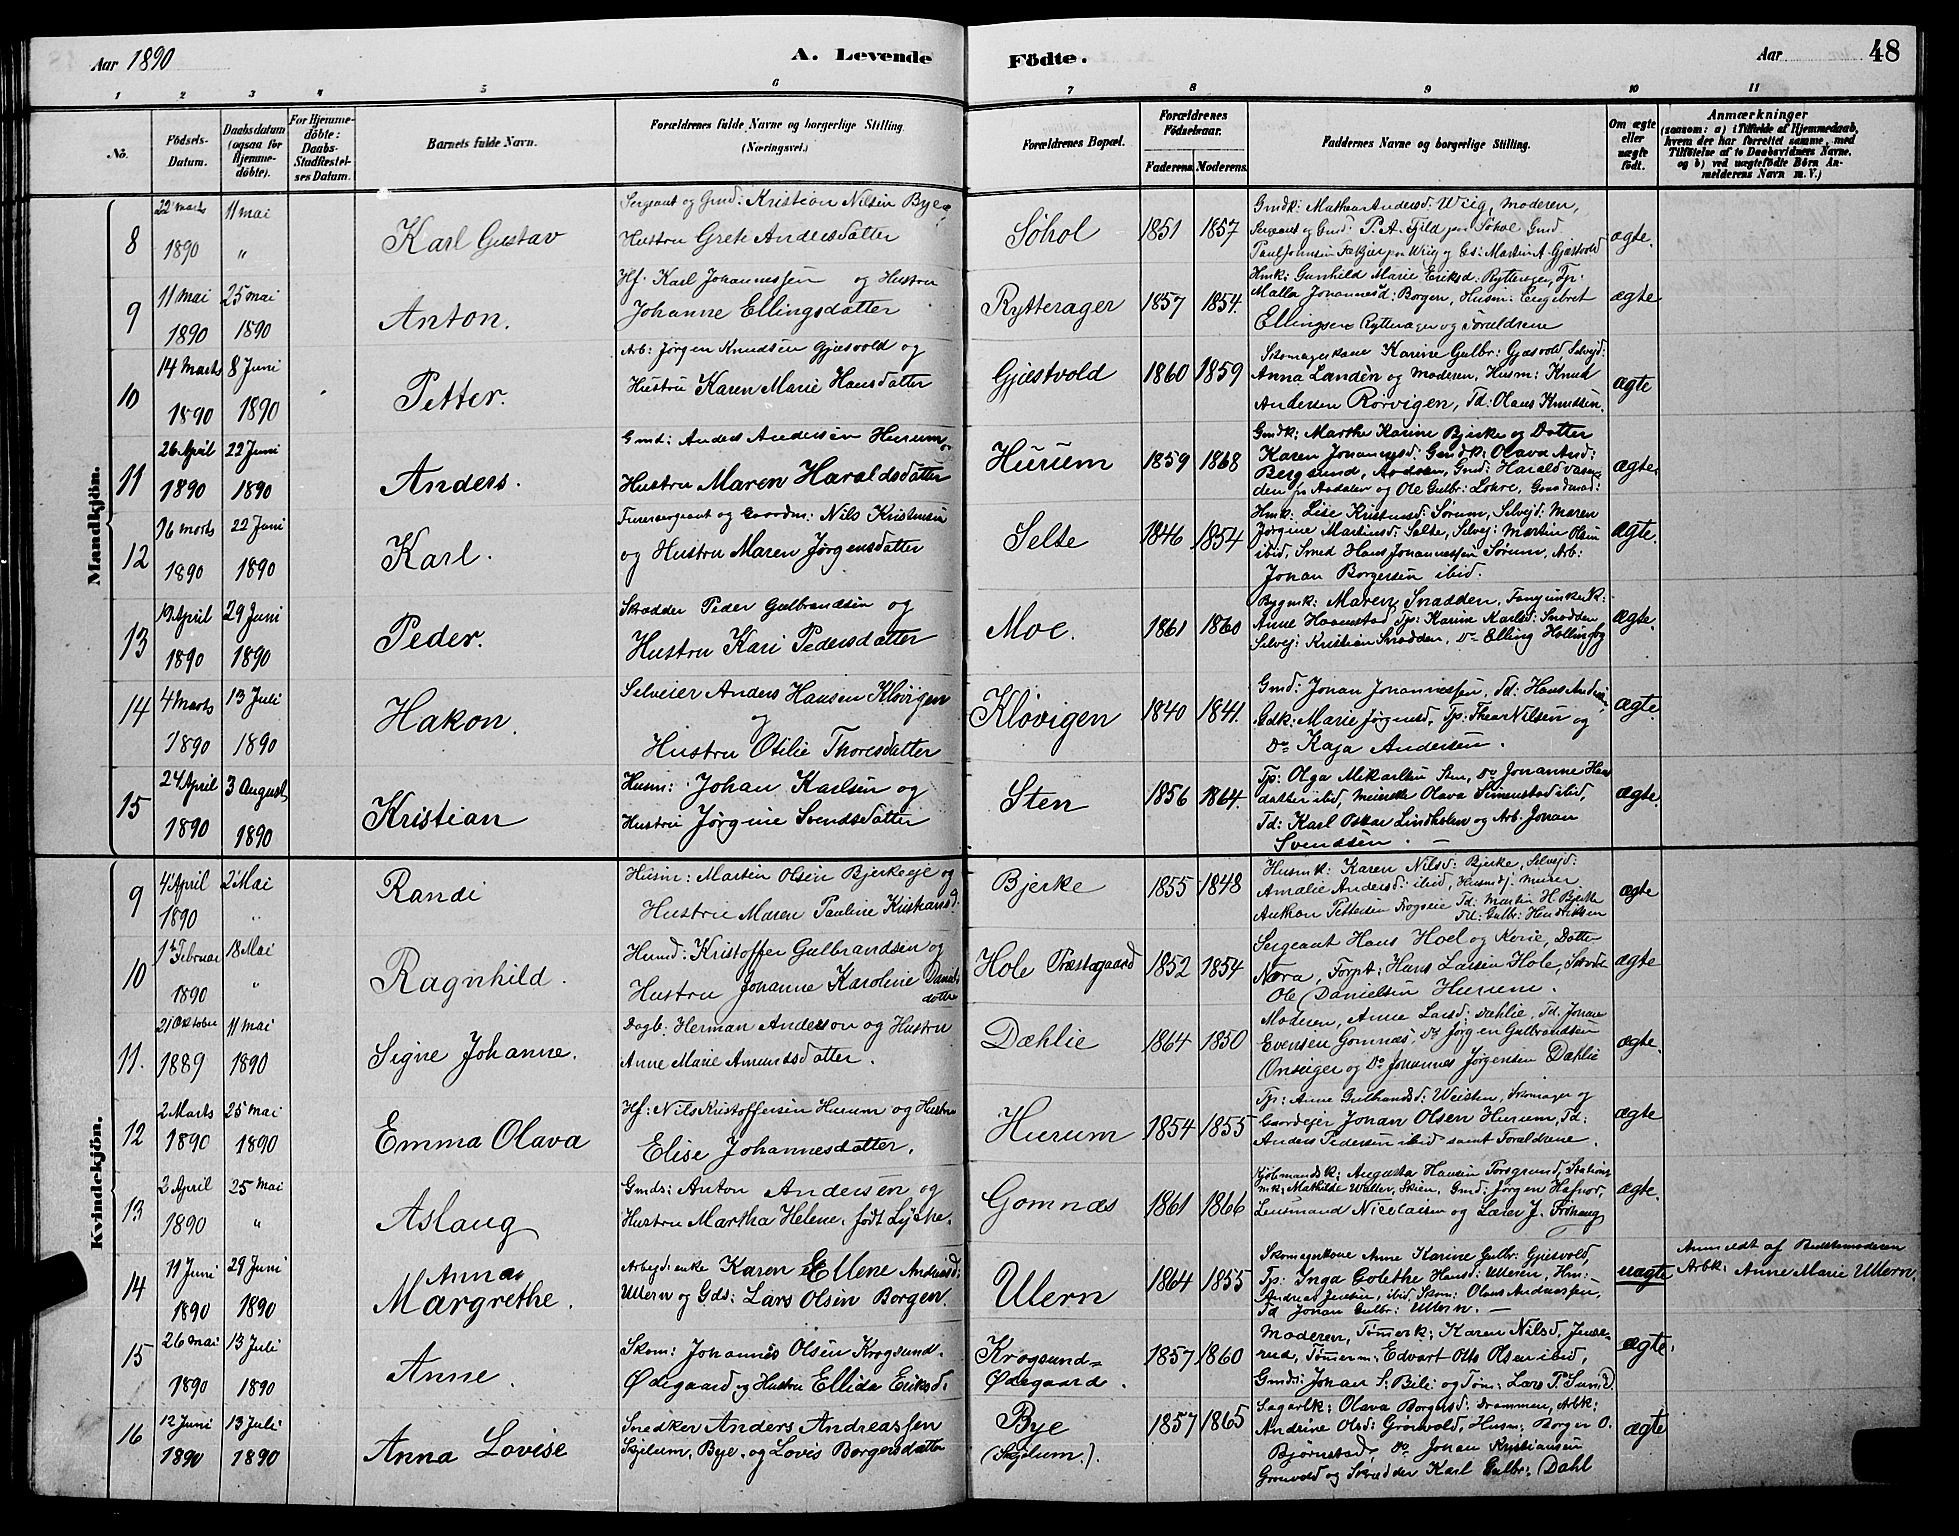 Aar 1890
A. Levende Födte.
Aar 48
1 2 3 4 5 6 7 8 9 10 11
No.
Födsels-
Datum.
Daabsdatum
(ogsaa for
Hjemme-
döbte).
For Hjemme-
döbte:
Daabs-
Stadfæstel-
ses Datum.
Barnets fulde Navn.
Forældrenes fulde Navne og borgerlige Stilling.
(Næringsvei.)
Forældrenes Bopæl.
Forældrenes
Födselsaar.
Faderens. Moderens.
Faddernes Navne og borgerlige Stilling.
Om ægte
eller
uægte
født.
Anmærkninger
(saasom: a) i Tilfælde af Hjemmedaab,
hvem der har forrettet samme, med
Tilföielse af to Daabsvidners Navne.
og b) ved uægtefödte Börn An-
melderens Navn m. V.)
Mandkjön.
8
22 marts 1890
11 mai "
Karl Gustav
Sergeant og Gmd: Kristian Nilsen Bye og
Hustru Grete Andersdatter
Sohol
1851 1857
Gmdk: Mathea Andersd: Wiig, Moderen,
Sergeant og Gmd: P. A. Fjeld Sohol Gmd.
ægte.
9
11 mai 1890
25 mai 1890
Anton.
Hf: Karl Johannessen og Hustru
Johanne Ellingsdatter
Rytterager
1857 1854.
Hmk: Gunhild Marie Eriksd: Rytterager, Tp:
Malla Johannesd: Borgen, Husm: Engebret
Ellingsen Rytterager og Forældrene
ægte
10
14 Marts 1890
8 Juni 1890
Petter.
Arb: Jørgen Knudsen Gjæsvold og
Hustru Karen Marie Hansdatter
Gjæstvold
1860 1859
Skomagerkone Karine Gulbr: Gjæsvold, Selvejd:
Anna Landén og Moderen, Husm: Knud
Andersen Rörvigen, Td: Olaus Knudsen.
ægte
11
26 April 1890
22 Juni 1890
Anders.
Gmd: Anders Andersen Hurum og
Hustru Maren Haraldsdatter
Hurum
1859 1868
Gmdk: Marthe Karine Bjerke og Datter
Karen Johannesd: Gmdk: Olava And:
Bergsund, Aadalen, Gmd: Harald Vasen-
den fra Aadalen og Ole Gulbr: Lohre, Gaardmd:
ægte
12
16 marts 1890
22 Juni 1890
Karl.
Furersergeant og Gaardm: Nils Kristensen
og Hustru Maren Jørgensdatter
Selte
1846 1854
Hmk: Lise Kristensd: Sørum, Selvejd: Maren
Jørgine Martinsd: Selte, Selvej: Martin Olsen
ibid, Smed Hans Johannessen Sørum, Arb:
Johan Borgersen ibid.
ægte.
13
19 April 1890
29 Juni 1890
Peder.
Skrædder Peder Gulbrandsen og
Hustru Kari Pedersdatter
Moe.
1861 1860
Bygmk: Maren Snadden,
Anne Haanestad Tp: Karine Karlsd: Snadden
Selvej: Kristian Snadden, Do Elling
ægte.
14
4 Marts 1890
13 Juli 1890
Hakon.
Selveier Anders Hansen Kløvigen
og
Hustru Otilie Thoresdatter
Kløvigen
1840 1841.
Gmd: Johan Johannessen, Td: Hans Andersen,
Gdk: Marie Jørgensd, Tp: Thea Nilsen og
Do Kaja Andersen.
ægte.
15
24 April 1890
3 August 1890
Kristian
Husm: Johan Karlsen og
Hustru Jørgine Svendsdatter
Sten
1856 1864.
Tp: Olga Mikalsen Sten, Do Johanne Hans
datter ibid, Meierske Olava Simenstad ibid,
Td: Karl Oskar Lindholm og Arb. Johan
Svendsen. —
ægte.
Kvindekjön.
9
4 April 1890
2 Mai "
Randi
Husm: Martin Olsen Bjerkeeje og
Hustru Maren Pauline Kristiansd:
Bjerke
1855 1848
Husmk: Karen Nilsd: Bjerke, Selvejd:
Amalie Andersd: ibid, Husmdj: Murer
Anthon Pettersen Frogseie Td: Martin H Bjerke
Td: Gulbr: Hendriksen
ægte
10
1ste Februar 1890
18 Mai "
Ragnhild.
Husmd: Kristoffer Gulbrandsen og
Hustru Johanne Karoline Daniels-
datter
Hole Præstegaard
1852 1854
Sergeant Hans Hoel og Kone, Datter
Nora, Forpt: Hans Larsen Hole, Skrædder
Ole Danielsen Hurum.
ægte
11.
21 Oktober 1889
11 mai 1890
Signe Johanne.
Dagb: Herman Anderson og Hustru
Anne Marie Amundsdatter.
Dæhlie
1864 1850
Moderen, Anne Larsd: Dæhlie, Td. Johan
Evensen Gomnæs, Do Jørgen Gulbrandsen
Onsager og Do Johannes Jørgensen Dæhlie
ægte.
12
2 Marts 1890
25 mai 1890
Emma Olava
Hf: Nils Kristoffersen Hurum og Hustru
Elise Johannesdatter.
Hurum
1854 1855
Tp: Anne Gulbrandsd: Weisten, Skomager og
Gaardejer Johan Olsen Hurum, Td:
Anders Pedersen ibid samt Forældrene.
ægte
13
2 April 1890
25 mai "
Aslaug
Gmds: Anton Andersen og
Hustru Martha Helene, født Lyche.
Gomnæs
1861 1866
Kjøbmandsk: Augusta Hansen Porsgrund, Stations
mk: Mathilde Walter, Skien, Gmd: Jørgen Hafnor,
Lensmand Nicolaisen og Lærer J. Frøhaug
ægte.
14
11 Juni 1890
29 Juni 1890
Anna
Margrethe.
Arbejdsenke Karen Ellene Andersd:
Ullern og Gds: Lars Olsen Borgen.
Ullern
1864 1855
Skomagerkone Anne Karine Gulbr: Gjesvold,
Tp: Inga Golethe Hansd: Ulleren, Hm:
Andreas Jensen, ibid, Skom: Olaus Andreassen,
Td Johan Gulbr: Ullern. —
uægte
Anmeldt af Barnemoderen
Arbk: Anne Marie Ullern.
15
26 mai 1890
13 Juli 1890
Anne.
Skom: Johannes Olsen Krogsund-
Ødegaard og Hustru Ellida Eriksd:
Krogsund-
Ødegaard.
1857 1860
Moderen, Tømerk: Karen Nilsd, Jonse-
rud, Tømerm: Edvart Otto Olsen ibid,
Gmds: Johan S. Bili og Tøm: Lars P. Sund.
ægte.
16
12 Juni 1890
13 Juli 1890
Anna Lovise
Snedker Anders Andreassen
Skjelum, Bye, og Lovis Borgersdatter
Bye
(Skjelum.).
1857 1865
Sagarbk: Olava Borgersd: Drammen, Arbk:
Andrine Olsd: Grønvold, Husm: Borger O.
Bjørnstad, Do Johan Kristiansen
Grønvold og Skrædder Karl Gulbr: Dahl
ægte